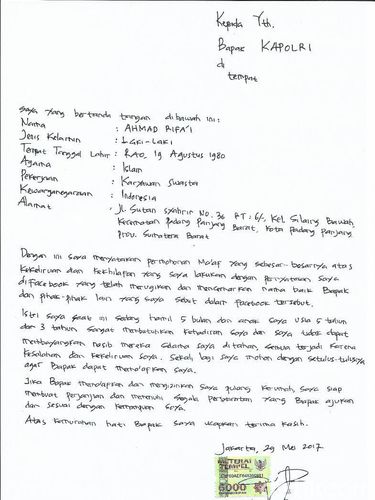 Kepada Yth.
Bapak KAPOLRI
di
tempat
Saya yang bertanda tangan dibawah ini:
Nama : AHMAD RIFA'I
Jenis Kelamin : Laki-Laki
Tempat Tanggal Lahir : RAO, 19 Agustus 1980
Agama : Islam
Pekerjaan : Karyawan Swasta
Kewarganegaraan : Indonesia
Alamat : Jl. Sutan Syahrir No. 36 RT: 6/-, Kel. Silaing Bawah,
Kecamatan Padang Panjang Barat, Kota Padang Panjang
Prov. Sumatera Barat
Dengan ini saya menyatakan permohonan Ma'af yang sebesar-besarnya atas
Kekeliruan dan Kekhilapan yang saya lakukan dengan pernyataan saya
di facebook yang telah merugikan dan mencemarkan nama baik Bapak
dan pihak-pihak lain yang saya sebut dalam facebook tersebut.
Istri saya saat ini sedang hamil 5 bulan dan anak saya usia 5 tahun
dan 3 tahun sangat membutuhkan kehadiran saya dan saya tidak dapat
membayangkan nasib mereka selama saya ditahan, semua terjadi karena
kesalahan dan kekeliruan saya. Sekali lagi saya mohon dengan setulus-tulusnya
agar Bapak dapat mema'afkan saya.
Jika Bapak mema'afkan dan mengizinkan saya pulang kerumah, saya siap
membuat perjanjian dan memenuhi segala persyaratan yang Bapak ajukan
dan sesuai dengan kemampuan saya.
Atas kemurahan hati Bapak saya ucapkan terima kasih.
Jakarta, 29 Mei 2017
METERAI
TEMPEL
6000